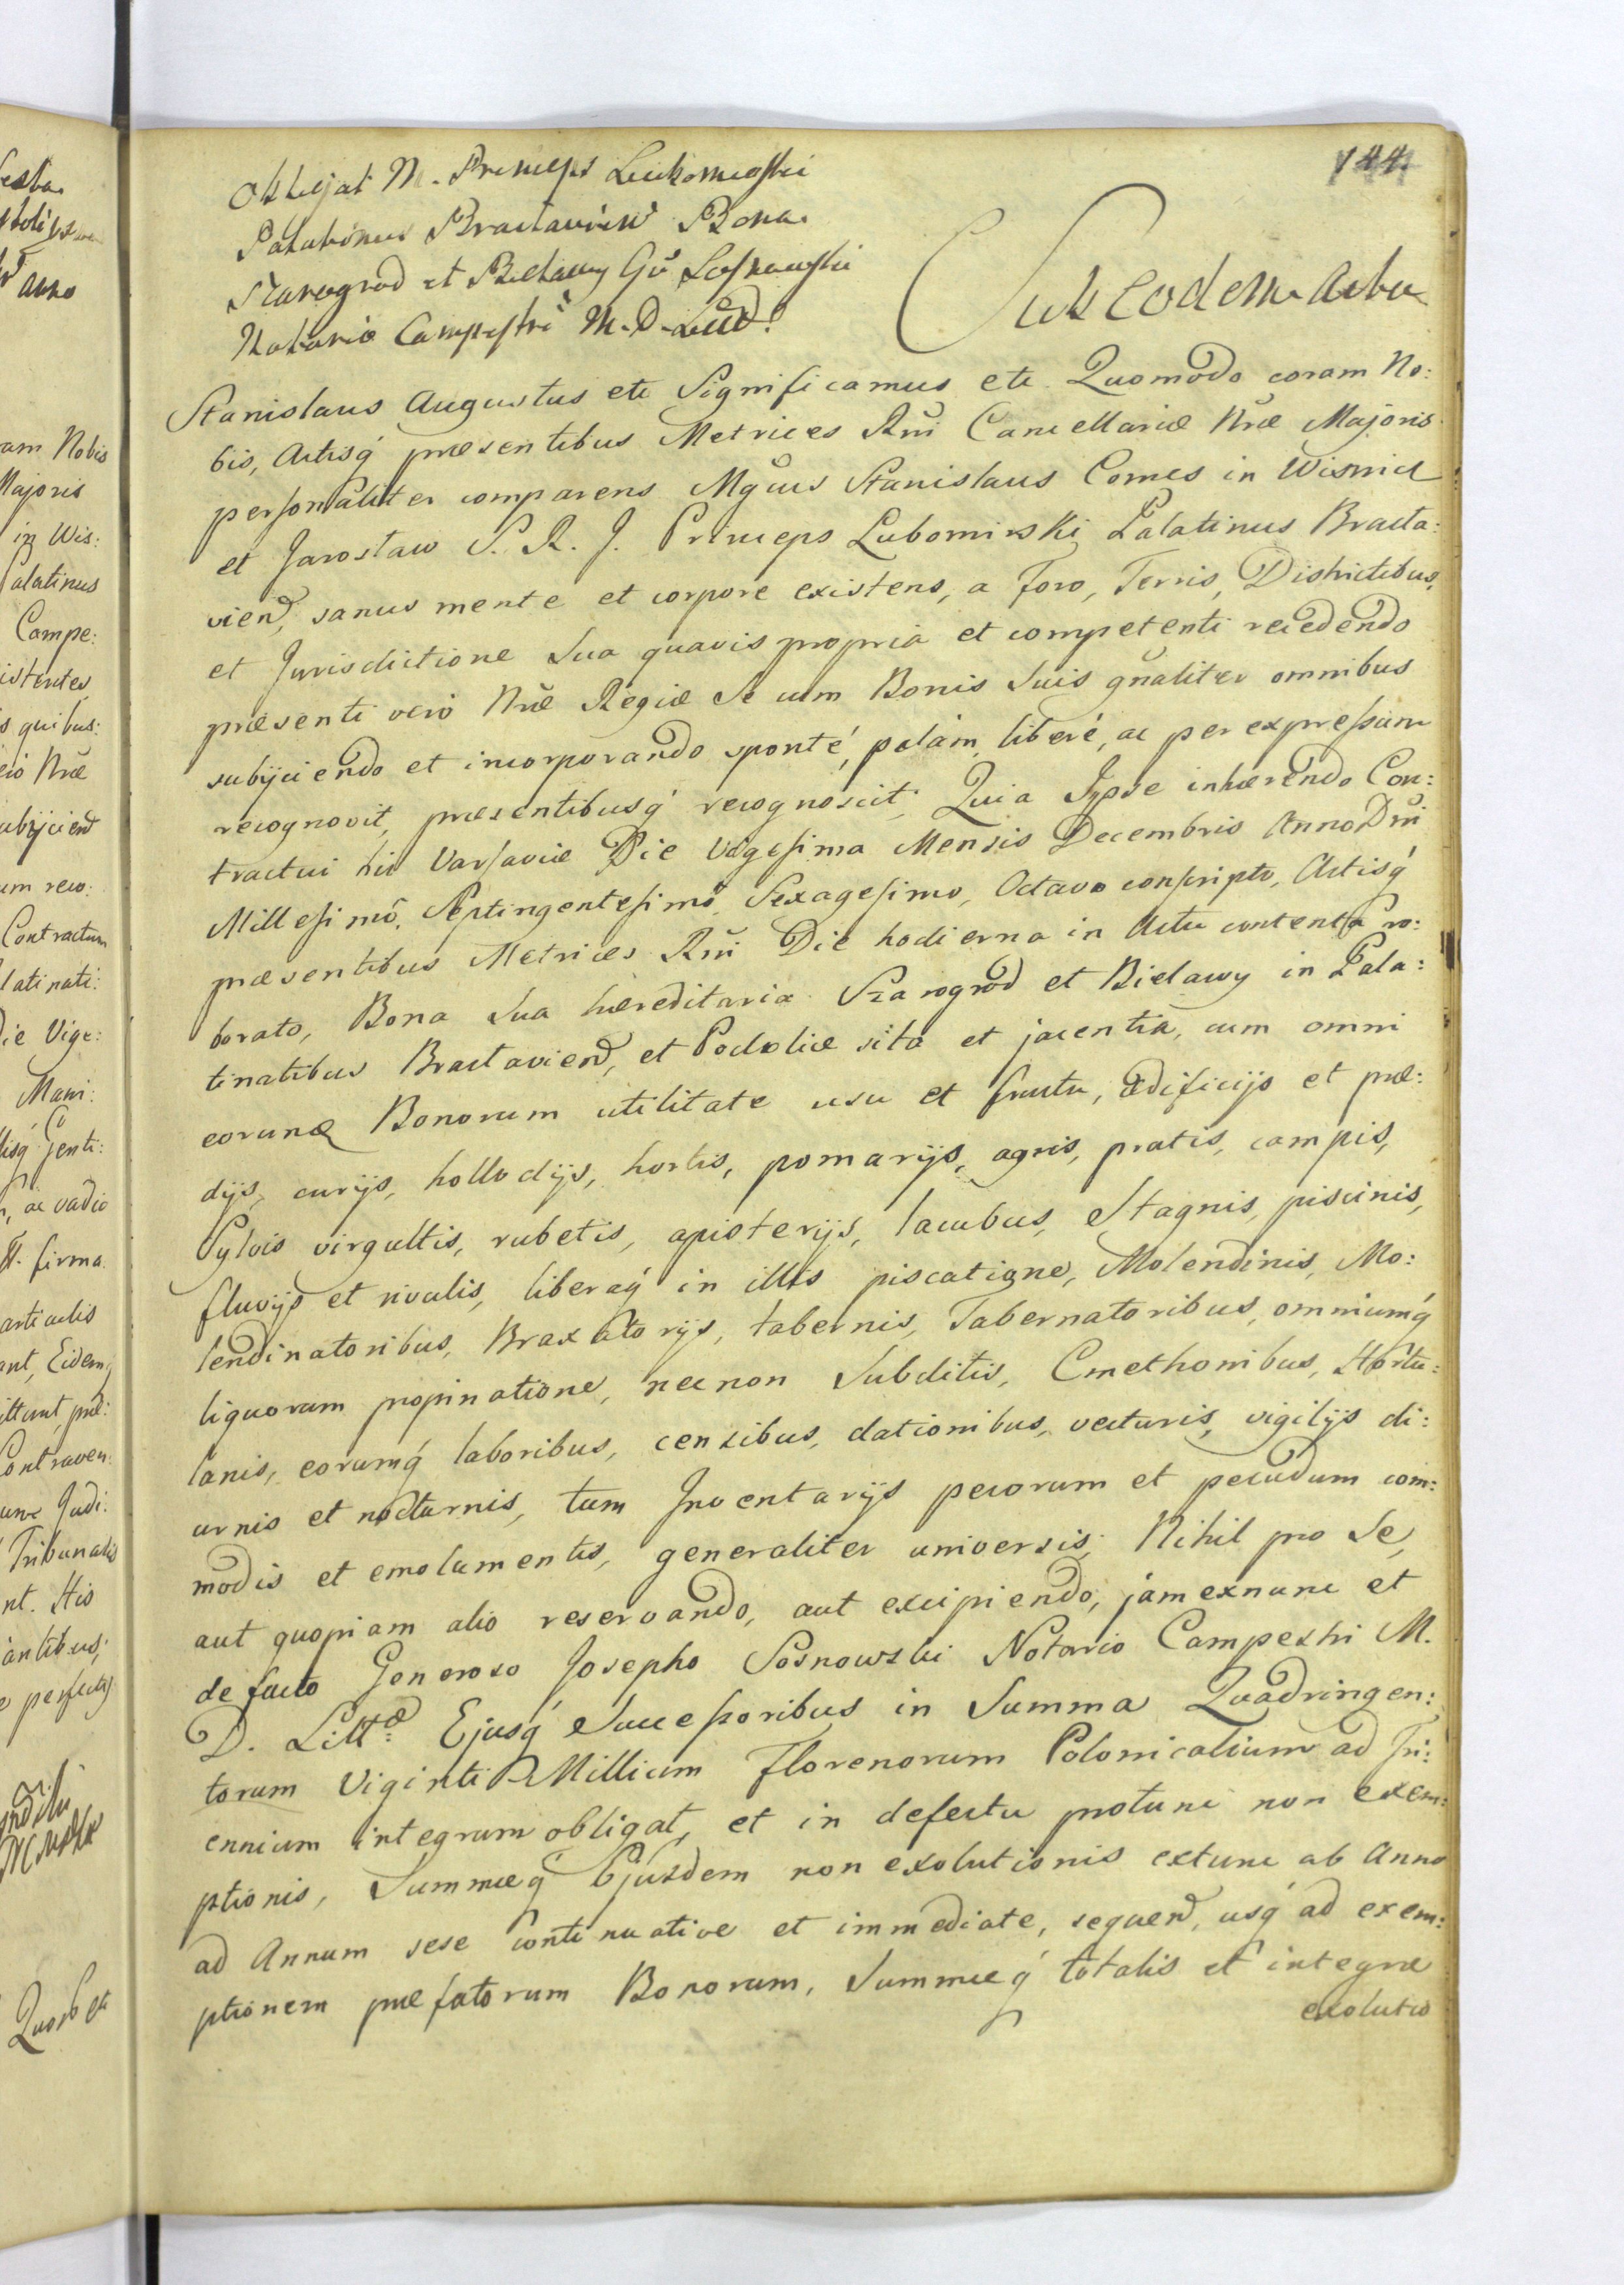 144.
Obligat M. Princeps Lubomirski
Palatinus Bractavień Bona
Szarogrod et Bielawy Gō Sosnowski
Notario Campestri M. D. Litt.
Sub eodem Actu
Stanislaus Augustus etc Significamus etc Quomodo coram No:
bis, Actisq́ præsentibus Metrices Rñi Cancellariæ Nræ Majoris
personaliter comparens Mgcus Stanislaus Comes in Wisnicz
et Jaroslaw S. R. J. Princeps Lubomirski Palatinus Bracta:
vień, sanus mente et corpore existens, a Foro, Terris, Districtibus,
et Jurisdictione Sua quavis propria et competenti recedendo
præsenti veró Nræ Regiæ Se cum Bonis Suis gñaliter omnibus
subijciendo et incorporando sponté, palám, liberé, ac per expressum
recognovit, præsentibusq́ recognoscit; Quia Ipse inhærendo Con:
tractui hic Varsaviæ Die Vigesima Mensis Decembris Anno Dñi
Millesimó, Septingentesimó, Sexagesimo, Octavo conscripto, Actisq́
præsentibus Metrices Rñi Die hodierna in Actu contenta ro:
borato, Bona Sua hæreditaria Szarogrod et Bielawy in Pala:
tinatibus Bractavień, et Podoliæ sita et jacentia, cum omni
eorund Bonorum utilitate usu et fructu, ædificijs et præ:
dijs, curijs, hollodijs, hortis, pomarijs, agris, pratis, campis,
Sylvis virgultis, rubetis, apisterijs, lacubus, Stagnis, piscinis,
fluvijs et rivulis, liberaq́ in illis piscatione, Molendinis, Mo:
lendinatoribus, Braxatorijs, tabernis, Tabernatoribus, omniumq́
liquorum propinatione, necnon Subditis, Cmethonibus, Hortu:
lanis, eorumq́ laboribus, censibus, dationibus, vecturis, vigilijs di:
urnis et nocturnis, tum Inventarijs pecorum et pecudum com:
modis et emolumentis, generaliter universis; Nihil pro Se,
aut quopiam alio reservando, aut excipiendo, jam exnunc et
de facto Generoso Josepho Sosnowski Notario Campestri M.
D. Litt. Ejusq́ Successoribus in Summa Quadringen:
torum Viginti Millium Florenorum Polonicalium ad Tri:
ennium integrum obligat, et in defectu protunc non exem:
ptionis, Summæq́ Ejusdem non exolutionis extunc ab Anno
ad Annum sese continuative et immediate, sequeń, usq́ ad exem:
ptionem præfatorum Bonorum, Summæq́ totalis et integræ
exolutio